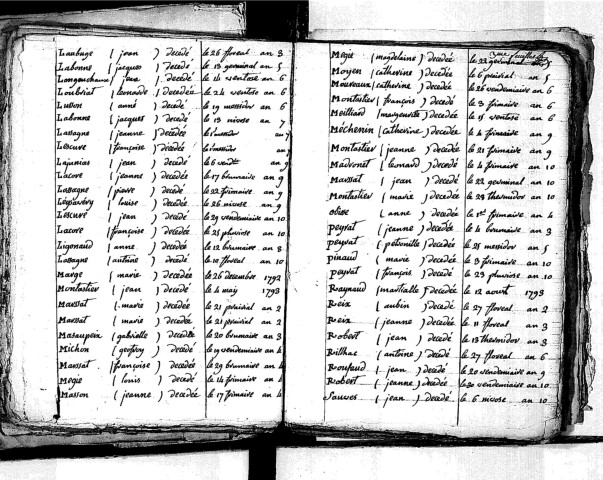 Laubuge ( jean ) decedé le 26 floreal an 3
Labonne ( jacques ) decedé le 13 germinal an 5
Longeuchaux ( jean ) decedé le 14 ventose an 6
Loubriat ( leonarde ) decedée le 24 ventose an 6
Lusson ( anne ) decedée le 19 messidor an 6
Labonne ( jacques ) decedé le 13 nivose an 7
Lassagne ( jeanne ) decedée le messidor an
Lescure ( françoise ) decedée le messidor an
Lajanias ( jean ) decedé le 6 vendre an 9
Lacore ( jeanne ) decedée le 17 brumaire an 9
Lassagne ( pierre ) decedé le 22 frimaire an 9
( louise ) decedée le 26 nivose an 9
Lescure ( jean ) decedé le 29 vendemiaire an 10
Lacore ( françoise ) decedée le 25 pluviose an 10
Ligonaud ( anne ) decedée le 12 brumaire an 3
Lassagne ( antoine ) decedé le 10 floreal an 10
Marge ( marie ) decedée le 26 decembre 1792
Montastier ( jean ) decedé le 4 may 1793
Marssat ( marie ) decedée le 21 prairial an 2
Marssat ( marie ) decedée le 21 prairial an 2
Masaupein ( gabrielle ) decedée le 20 brumaire an 3
Michon ( geofroy ) decedé le 19 vendemiaire an 4
Marssat ( françoise ) decedée le 29 brumaire an 4
Megie ( louis ) decedé le 14 frimaire an 4
Masson ( jeanne ) decedée le 17 frimaire an 4
Megie ( magdelaine ) decedée le 23 germinal an 5
Moyen ( catherine ) decedée le 6 prairial an 5
Moureaux ( catherine ) decedée le 26 vendemiaire an 6
Montastier ( françois ) decedé le 3 frimaire an 6
Meilliard ( marguerite ) decedée le 15 ventose an 6
Méchenin ( catherine ) decedée le 4 frimaire an 9
Montastier ( jeanne ) decedée le 21 frimaire an 9
Madronet ( leonard ) decedé le 4 frimaire an 10
Marssat ( jean ) decedé le 22 germinal an 10
Montastier ( marie ) decedée le 28 thermidor an 10
olive ( anne ) decedée le 1er frimaire an 4
peyrat ( jeanne ) decedée le 4 brumaire an 3
peyrat ( petronille ) decedée le 25 messidor an 5
pinaud ( marie ) decedée le 3 frimaire an 10
peyrat ( françois ) decedé le 23 pluviose an 10
Raynaud ( martialle ) decedée le 12 aoust 1793
Reix ( aubin ) decedé le 27 floreal an 2
Reix ( jeanne ) decedée le 11 floreal an 3
Robert ( jean ) decedé le 13 thermidor an 3
Rilhac ( antoine ) decedé le 27 floreal an 6
Roufaud ( jean ) decedé le 20 vendemiaire an 9
Robert ( jeanne ) decedée le 20 vendemiaire an 10
Sauves ( jean ) decedé le 6 nivose an 10